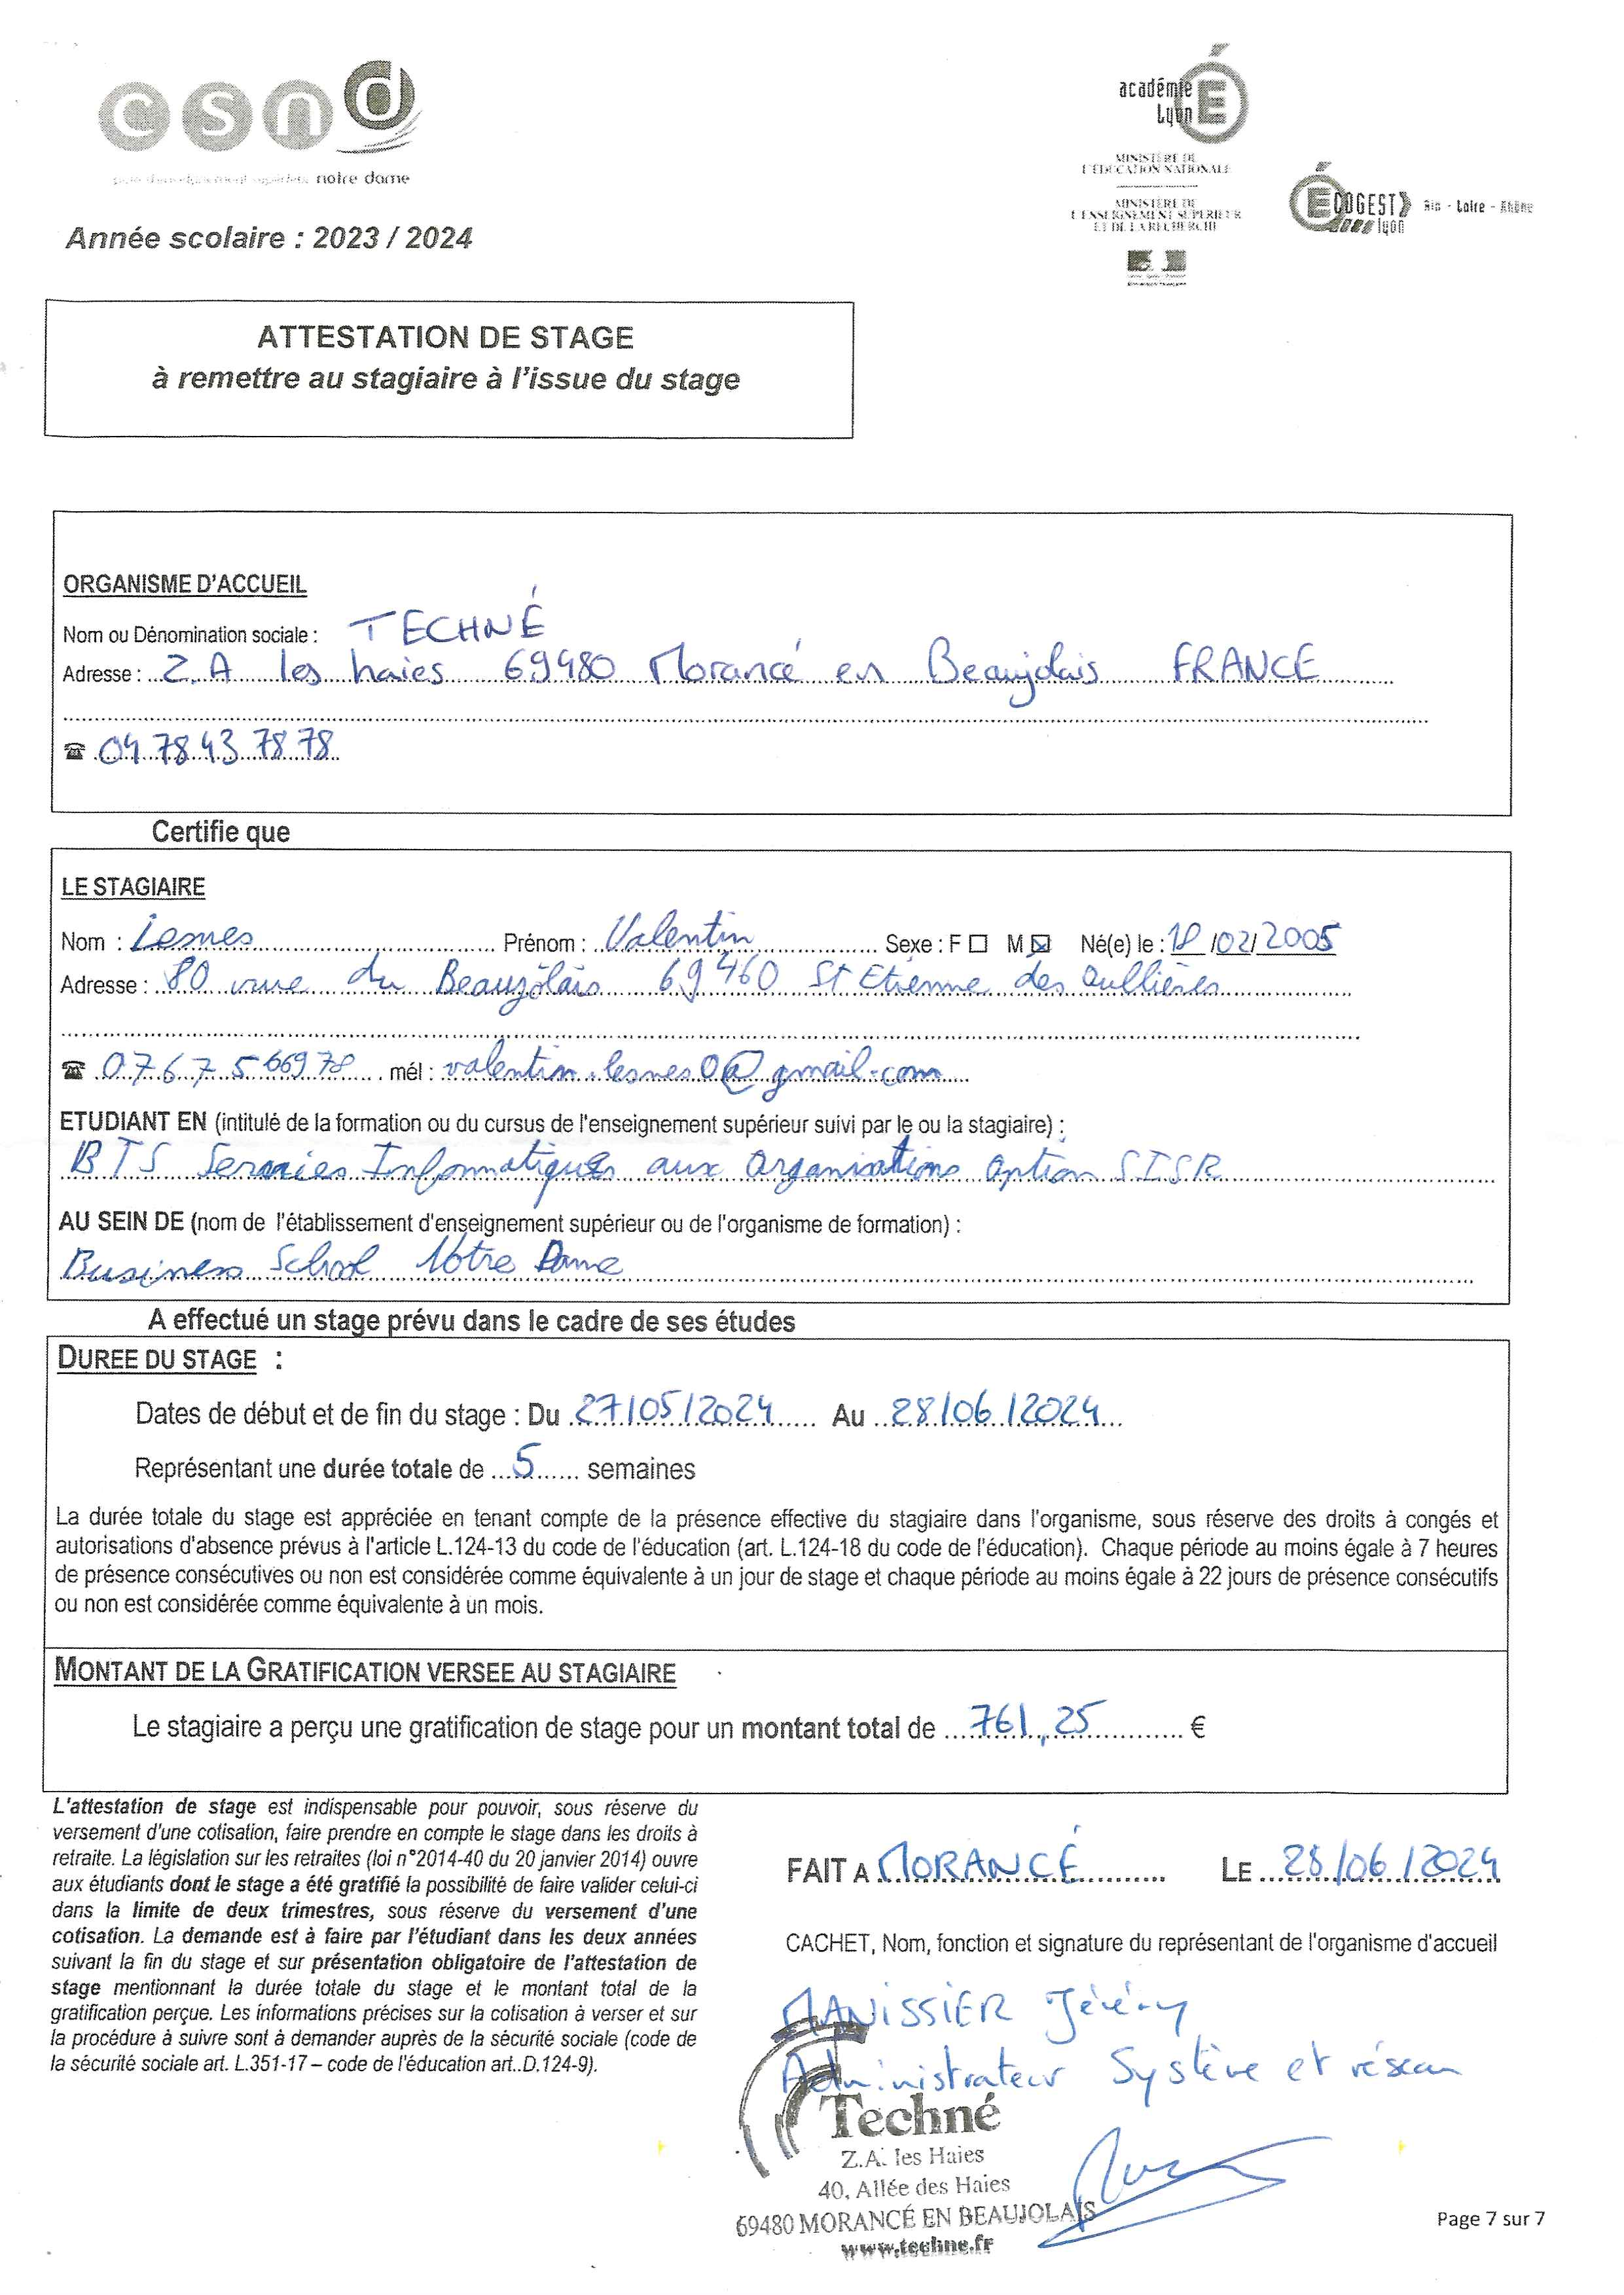 csnd
notre dame
académie
Lyon
MINISTÈRE DE
L'ÉDUCATION NATIONALE
MINISTÈRE DE
L'ENSEIGNEMENT SUPÉRIEUR
ET DE LA RECHERCHE
ÉCOGEST Ain - Loire - Rhône
lyon
Année scolaire : 2023 / 2024
ATTESTATION DE STAGE
à remettre au stagiaire à l'issue du stage
ORGANISME D'ACCUEIL
Nom ou Dénomination sociale : TECHNÉ
Adresse : Z.A les haies 69480 Morancé en Beaujolais FRANCE
☎ 04 78 43 78 78
Certifie que
LE STAGIAIRE
Nom : Lesnes Prénom : Valentin Sexe : F ☐ M ☒ Né(e) le : 18/02/2005
Adresse : 80 rue du Beaujolais 69460 St Etienne des Oullières
☎ 07 67 5 669 78 mél : valentin.lesnes0@gmail.com
ETUDIANT EN (intitulé de la formation ou du cursus de l'enseignement supérieur suivi par le ou la stagiaire) :
BTS Services Informatiques aux Organisations option SISR
AU SEIN DE (nom de l'établissement d'enseignement supérieur ou de l'organisme de formation) :
Business School Notre Dame
A effectué un stage prévu dans le cadre de ses études
DUREE DU STAGE :
Dates de début et de fin du stage : Du 27/05/2024 Au 28/06/2024
Représentant une durée totale de 5 semaines
La durée totale du stage est appréciée en tenant compte de la présence effective du stagiaire dans l'organisme, sous réserve des droits à congés et
autorisations d'absence prévus à l'article L.124-13 du code de l'éducation (art. L.124-18 du code de l'éducation). Chaque période au moins égale à 7 heures
de présence consécutives ou non est considérée comme équivalente à un jour de stage et chaque période au moins égale à 22 jours de présence consécutifs
ou non est considérée comme équivalente à un mois.
MONTANT DE LA GRATIFICATION VERSEE AU STAGIAIRE
Le stagiaire a perçu une gratification de stage pour un montant total de 761,25 €
L'attestation de stage est indispensable pour pouvoir, sous réserve du
versement d'une cotisation, faire prendre en compte le stage dans les droits à
retraite. La législation sur les retraites (loi n°2014-40 du 20 janvier 2014) ouvre
aux étudiants dont le stage a été gratifié la possibilité de faire valider celui-ci
dans la limite de deux trimestres, sous réserve du versement d'une
cotisation. La demande est à faire par l'étudiant dans les deux années
suivant la fin du stage et sur présentation obligatoire de l'attestation de
stage mentionnant la durée totale du stage et le montant total de la
gratification perçue. Les informations précises sur la cotisation à verser et sur
la procédure à suivre sont à demander auprès de la sécurité sociale (code de
la sécurité sociale art. L.351-17 – code de l'éducation art..D.124-9).
FAIT A MORANCÉ LE 28/06/2024
CACHET, Nom, fonction et signature du représentant de l'organisme d'accueil
MANISSIER Jérémy
Administrateur Système et réseau
Techné
Z.A. les Haies
40, Allée des Haies
69480 MORANCÉ EN BEAUJOLAIS
www.techne.fr
Page 7 sur 7